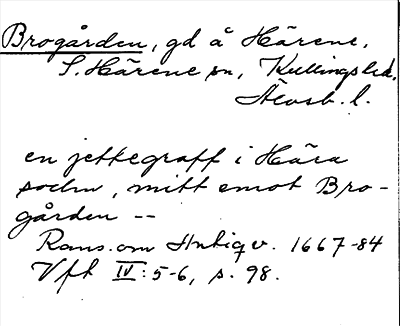 Brogården, gd å Härene,
S. Härene sn, Kullingshd.
Älvsb. l.
en jettegraff i Hära
sochn, mitt emot Bro-
gården --
Rans. om Antiqv. 1667-84
Vft IV: 5-6, s. 98.